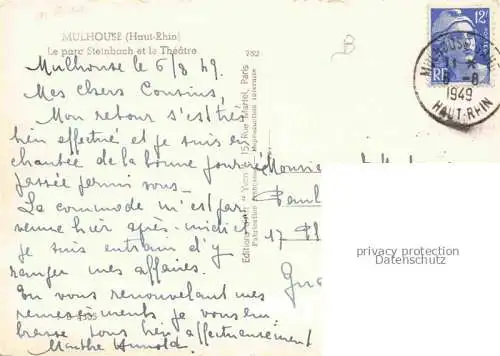 MULHOUSE (Haut-Rhin)
Le parc Steinbach et le Théâtre
752
Mulhouse le 6/8 49.
Mes chers Cousins,
Mon retour s'est très
bien effectué et je suis en
chantée de la bonne journée
passée parmi vous.
La commode m'est par
venue hier après-midi et
je suis entrain d'y
ranger mes affaires.
En vous renouvelant mes
remerciements je vous em
brasse tous bien affectueusement
Marthe
Editions d'art "Yvon" 15, Rue Martel, Paris
Fabrication Reproduction interdite
Monsieur
Paul
17
privacy protection
Datenschutz
12F
RF
MULHOUSE
8-8
1949
HAUT-RHIN